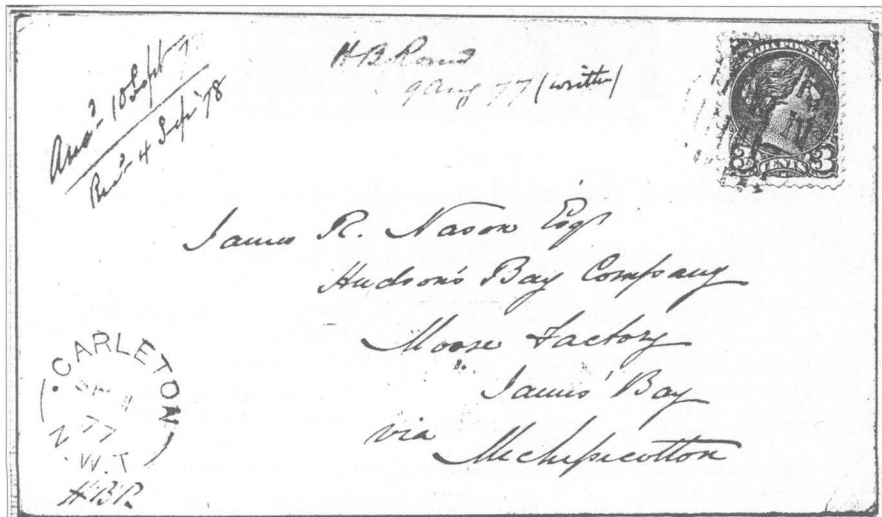 Ans'd 10 Sept
Rec'd 4 Sep 78
H B Round
9 Aug 77 (written)
CANADA POSTAGE
3 CENTS 3
James R. Nason Esqr
Hudson's Bay Company
Moose Factory
James' Bay
via Michipicotton
CARLETON
77
N.W.T
HBR